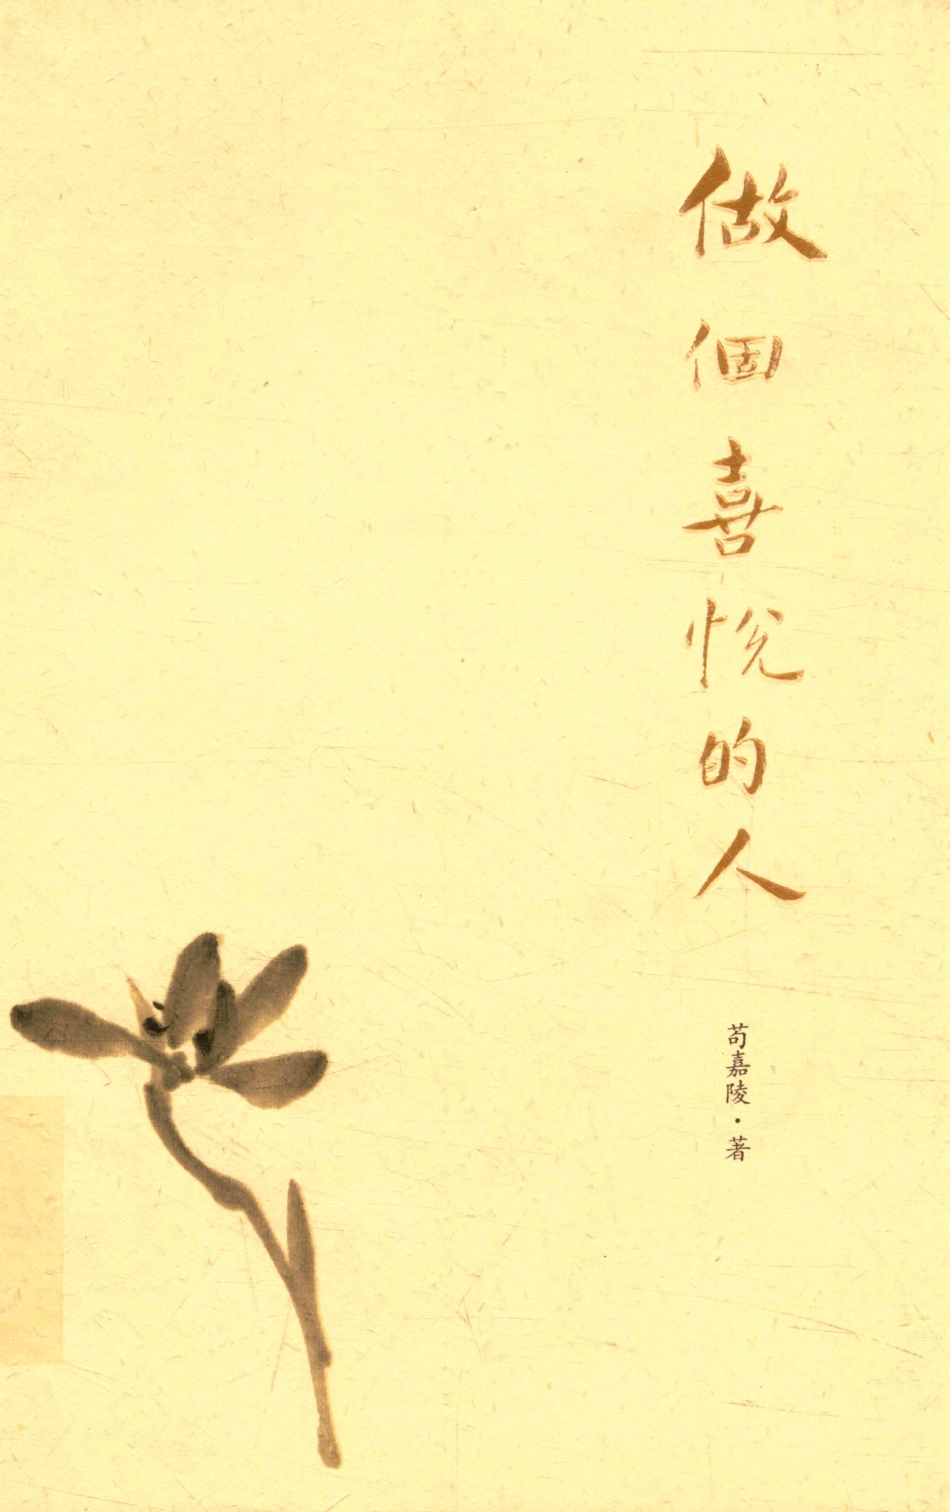 做個喜悅的人
苟嘉陵・著